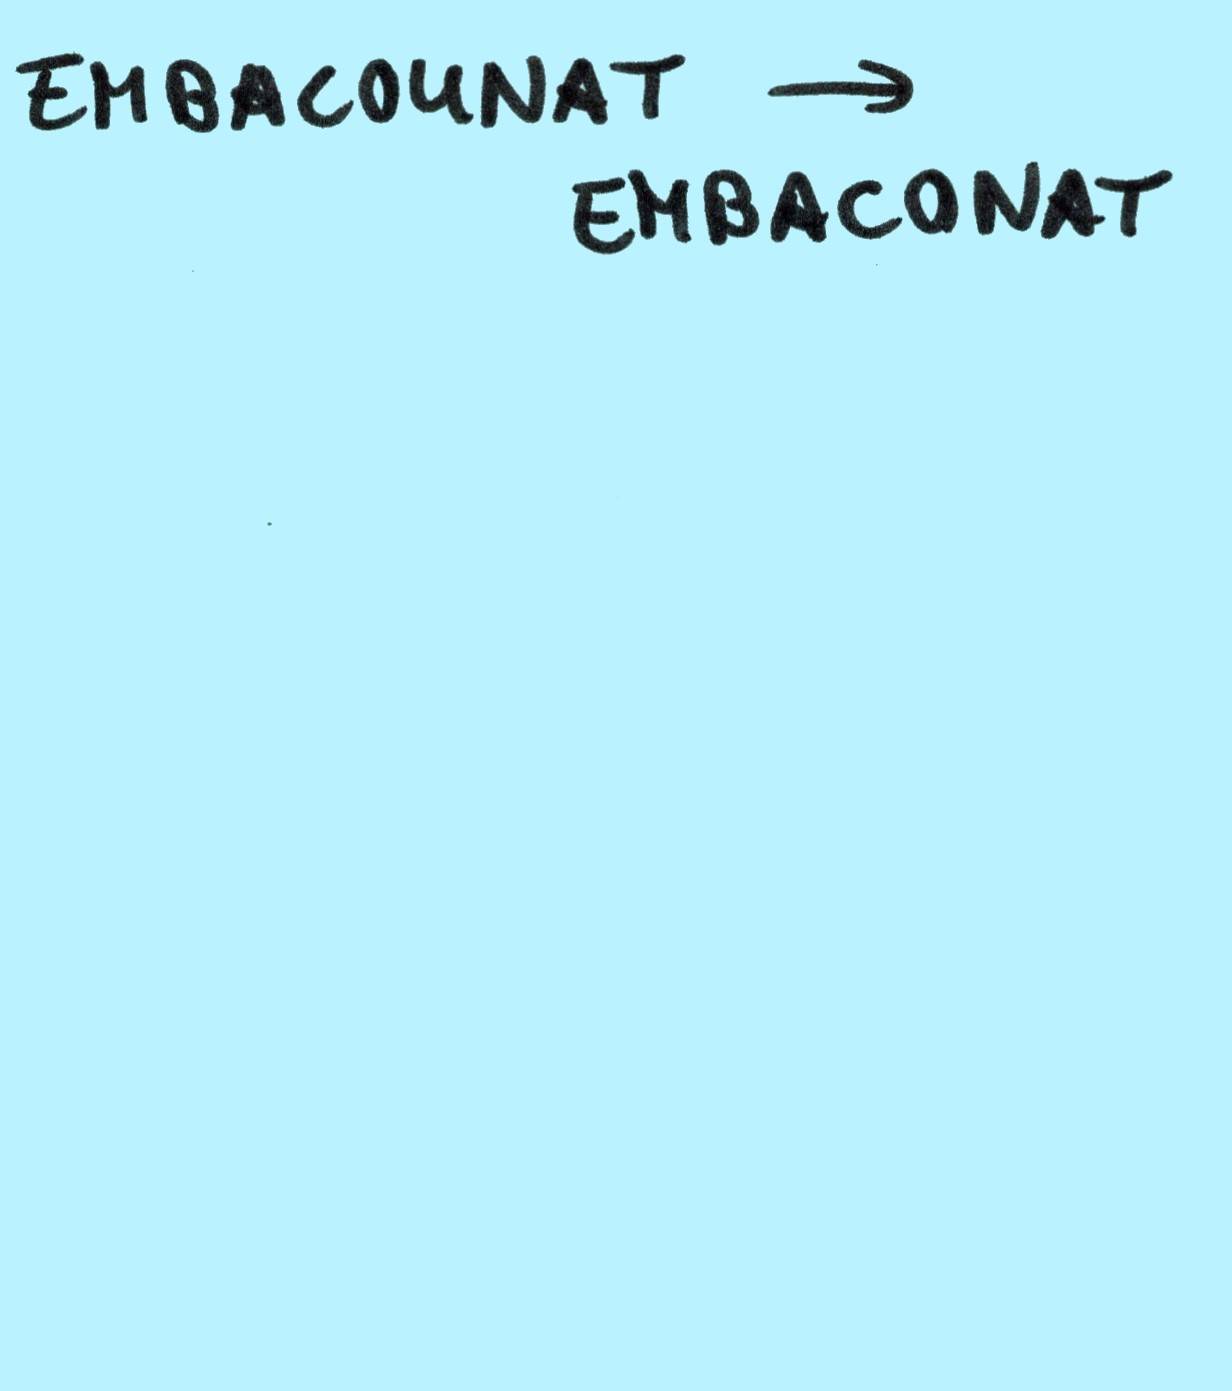 EMBACOUNAT →
EMBACONAT